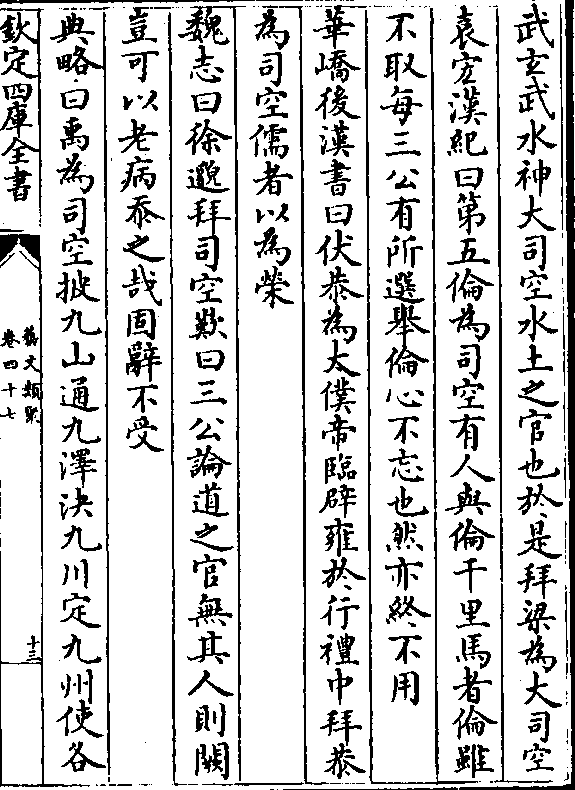 武玄武水神大司空水土之官也於是拜梁為大司空
袁宏漢紀曰第五倫為司空有人與倫千里馬者倫雖
不取每三公有所選舉倫心不忘也然亦終不用
華嶠後漢書曰伏恭為太僕帝臨辟雍於行禮中拜恭
為司空儒者以為榮
魏志曰徐邈拜司空歎曰三公論道之官無其人則闕
豈可以老病忝之哉固辭不受
典略曰禹為司空披九山通九澤決九川定九州使各
欽定四庫全書
藝文類聚
卷四十七
十三